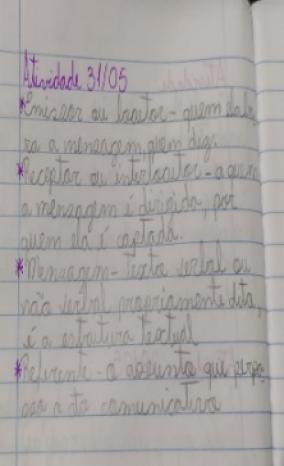 Atividade 31/05
*Emissor ou locutor - quem elabo
ra a mensagem, quem diz.
*Receptor ou interlocutor - a quem
a mensagem é dirigida, por
quem ela é captada.
*Mensagem - Texto verbal ou
não verbal propriamente dito,
é a estrutura textual
*Referente - o assunto que perpa
ssa o ato comunicativo